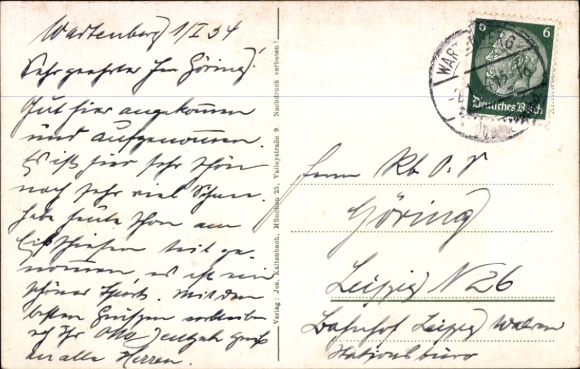 Wartenberg 1/I 34
Sehr geehrter Herr Göring!
Gut hier angekommen
und aufgenommen.
Es ist hier sehr schön
noch sehr viel Schnee.
habe heute schon am
Eisschießen teil ge-
nommen, es ist ein
schöner Sport. Mit den
besten Grüßen verbleibe
ich Ihr Otto
an alle Herren.
Verlag: Jos. Kaltenbach, München 25, Valleystraße 9. Nachdruck verboten!
WARTENBERG
6 6
Deutsches Reich
Herrn
Göring
Leipzig N 26
Bahnhof Leipzig Wahren
Stationsbüro